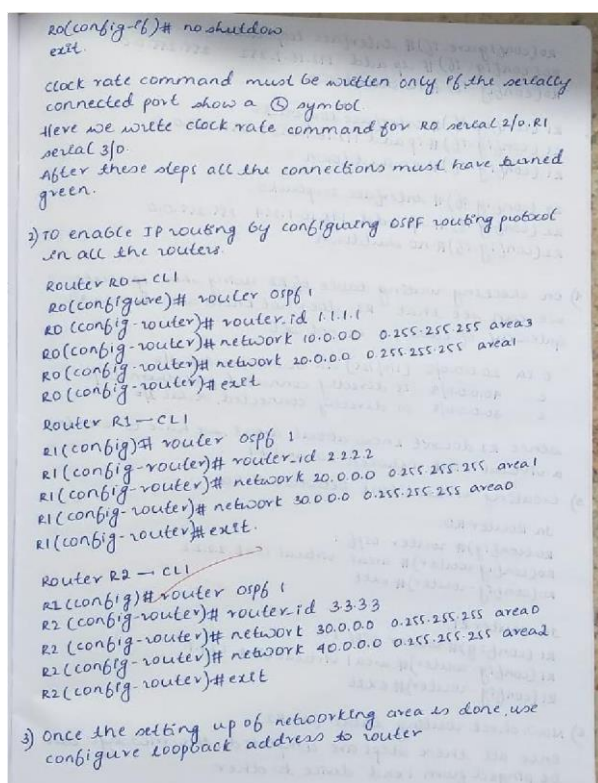 R0(config-if)# no shutdow
exit.
clock rate command must be written only if the serially
connected port show a symbol
Here we write clock rate command for R0 sereal 2/0. R1
serial 3/0.
After these steps all the connections must have turned
green.
2) TO enable IP routing by configuring OSPF routing protocol
in all the routers.
Router R0 — CLI
R0(configure)# router ospf 1
R0 (config-router)# router.id 1.1.1.1
R0(config-router)# network 10.0.0.0 0.255.255.255 area3
R0(config-router)# network 20.0.0.0 0.255.255.255 area1
R0(config-router)# exit
Router R1 — CLI
R1(config)# router ospf 1
R1(config-router)# router.id 2.2.2.2
R1(config-router)# network 20.0.0.0 0.255.255.255 area1
R1(config-router)# network 30.0.0.0 0.255.255.255 area0
R1(config-router)# exit.
Router R2 — CLI
R2 (config)# router ospf 1
R2 (config-router)# router.id 3.3.3.3
R2 (config-router)# network 30.0.0.0 0.255.255.255 area0
R2(config-router)# network 40.0.0.0 0.255.255.255 area2
R2(config-router)# exit
3) Once the setting up of networking area is done, use
configure loopback address to router